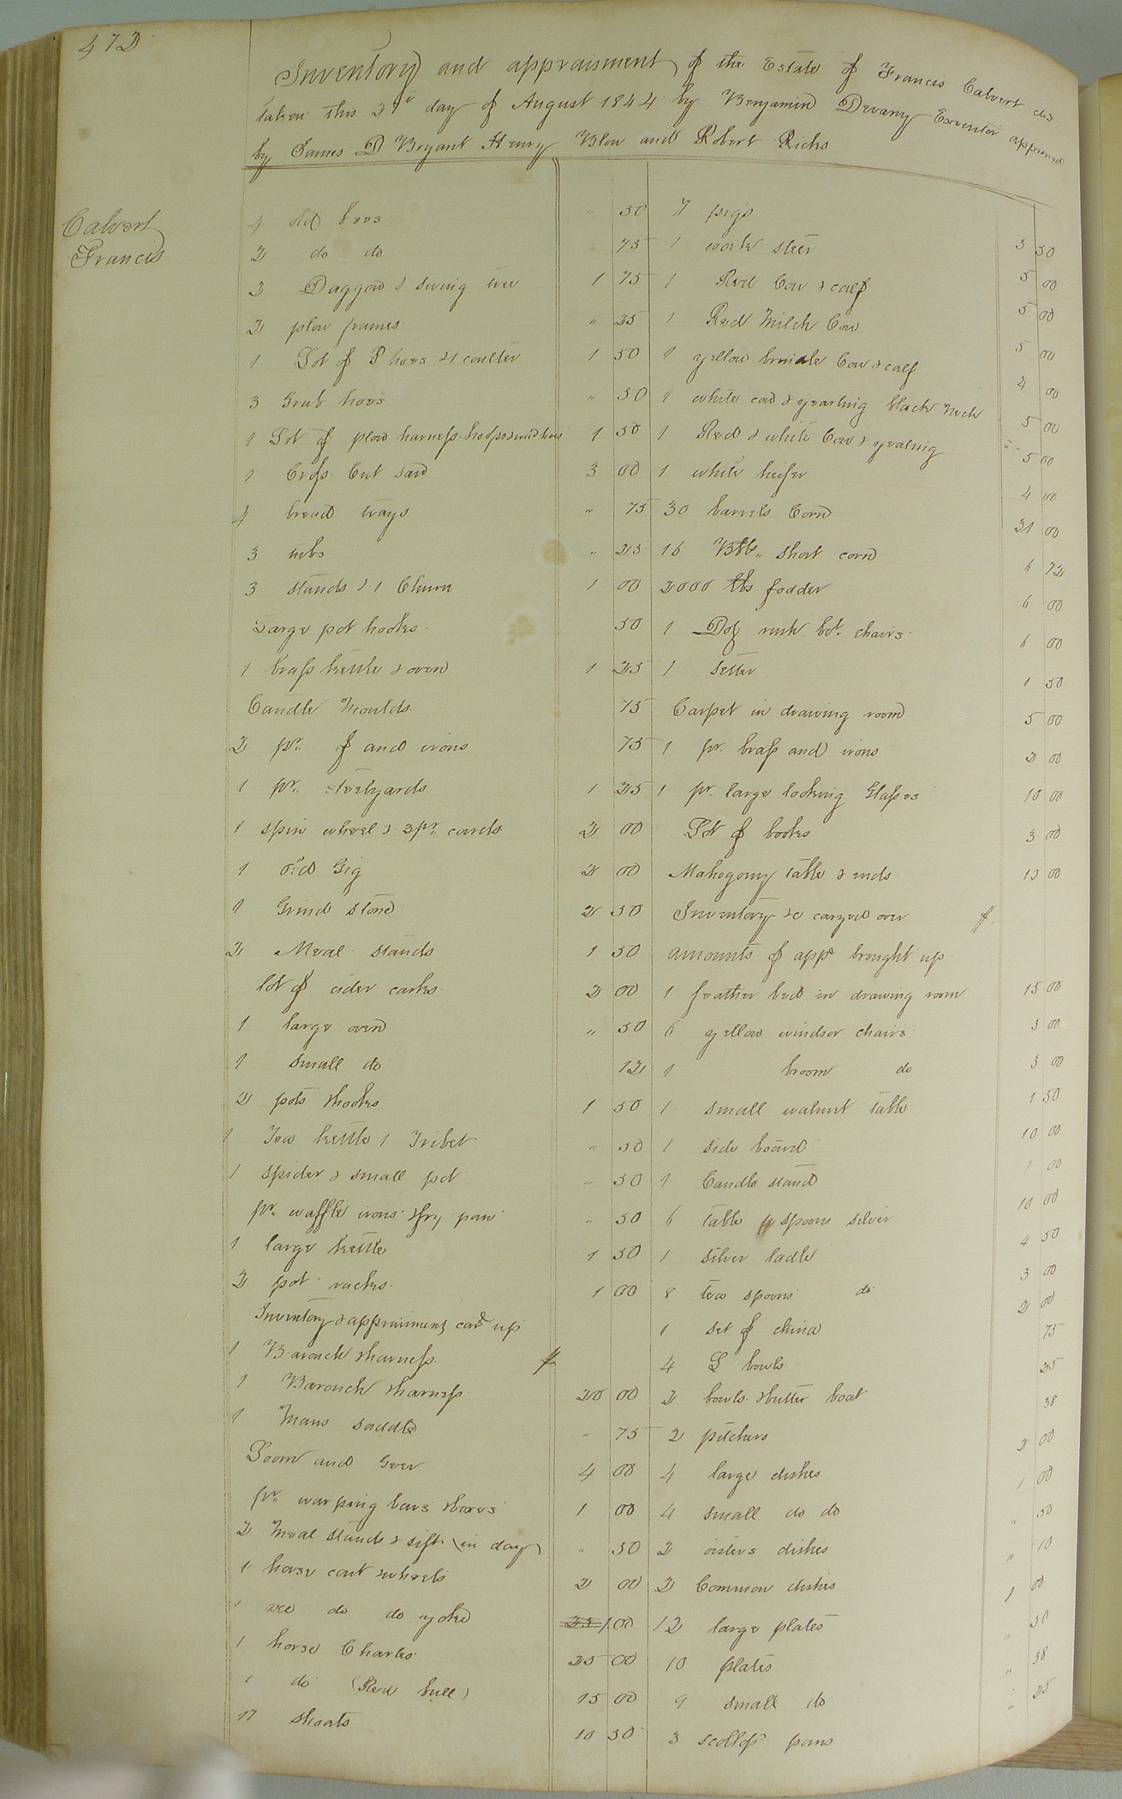 472
Inventory and appraisment of the Estate of Francis Calvert des
taken this day of August 1844 by Benjamin Devany Executor appraised
by James D Bryant Henry Blow and Robert Ricks
Calvert
Francis
4 old hoes " 50
2 do do 75
2 Daggon & swing tree 1 75
2 plow frames " 25
1 Lot of P hoes & 1 coulter 1 50
3 Grub hoes " 50
1 Lot of plow harness 1 50
1 Cross Cut saw 3 00
4 bread trays " 75
3 tubs " 25
3 stands & 1 Churn 1 00
Large pot hooks 50
1 brass kettle & oven 1 25
Candle Moulds 75
2 pr. of and irons 75
1 pr. steelyards 1 25
1 spin wheel & 3 pr. cards 2 00
1 old Gig 2 00
1 Grind stone 2 50
2 Meal stands 1 50
lot of cider casks 2 00
1 large oven " 50
1 small do 12
2 pots & hooks 1 50
1 Tea kettle 1 Tribet " 50
1 spider & small pot " 50
pr. waffle irons & fry pan " 50
1 large kettle 1 50
2 pot racks 1 00
Inventory & appraisment card up
1 Barouch & harness
1 Barouch & harness 20 00
1 Mans saddle " 75
Loom and Geer 4 00
pr. warping bars & boxes 1 00
2 Meal stands & sift " 50
1 horse cart & wheels 2 00
1 do do yoke 1.00
1 horse Charles 25 00
1 do (Red bull) 15 00
17 shoats 10 50
7 pigs 3 50
1 work steer 5 00
1 Red Cow & calf 5 00
1 Red Milch Cow 5 00
1 yellow brindle Cow & calf 4 00
1 white cow & yearling black neck 5 00
1 Red & white Cow & yearling 5 00
1 white heifer 4 00
30 barrels Corn 31 00
16 Bbls. short corn 6 72
2000 lbs fodder 6 00
1 Doz rush bot. chairs 6 00
1 settee 1 50
Carpet in drawing room 5 00
1 pr. brass and irons 2 00
1 pr. large looking Glasses 10 00
Lot of books 3 00
Mahogony table & ends 15 00
Inventory &c carryed over
amounts of appt brought up
1 feather bed in drawing room 15 00
6 yellow windsor chairs 3 00
1 broom do 3 00
1 small walnut table 1 50
1 side board 10 00
1 Candle stand 1 00
6 table spoons silver 10 00
1 silver ladle 4 50
8 tea spoons do 3 00
1 set of china 2 00
4 L bowls 75
2 bowls & butter boat 25
2 pitchers 38
4 large dishes 2 00
4 small do do 1 00
2 oisters dishes " 50
2 Common dishes " 10
12 large plates 1 00
10 plates " 50
9 small do " 38
3 scollop pans " 25